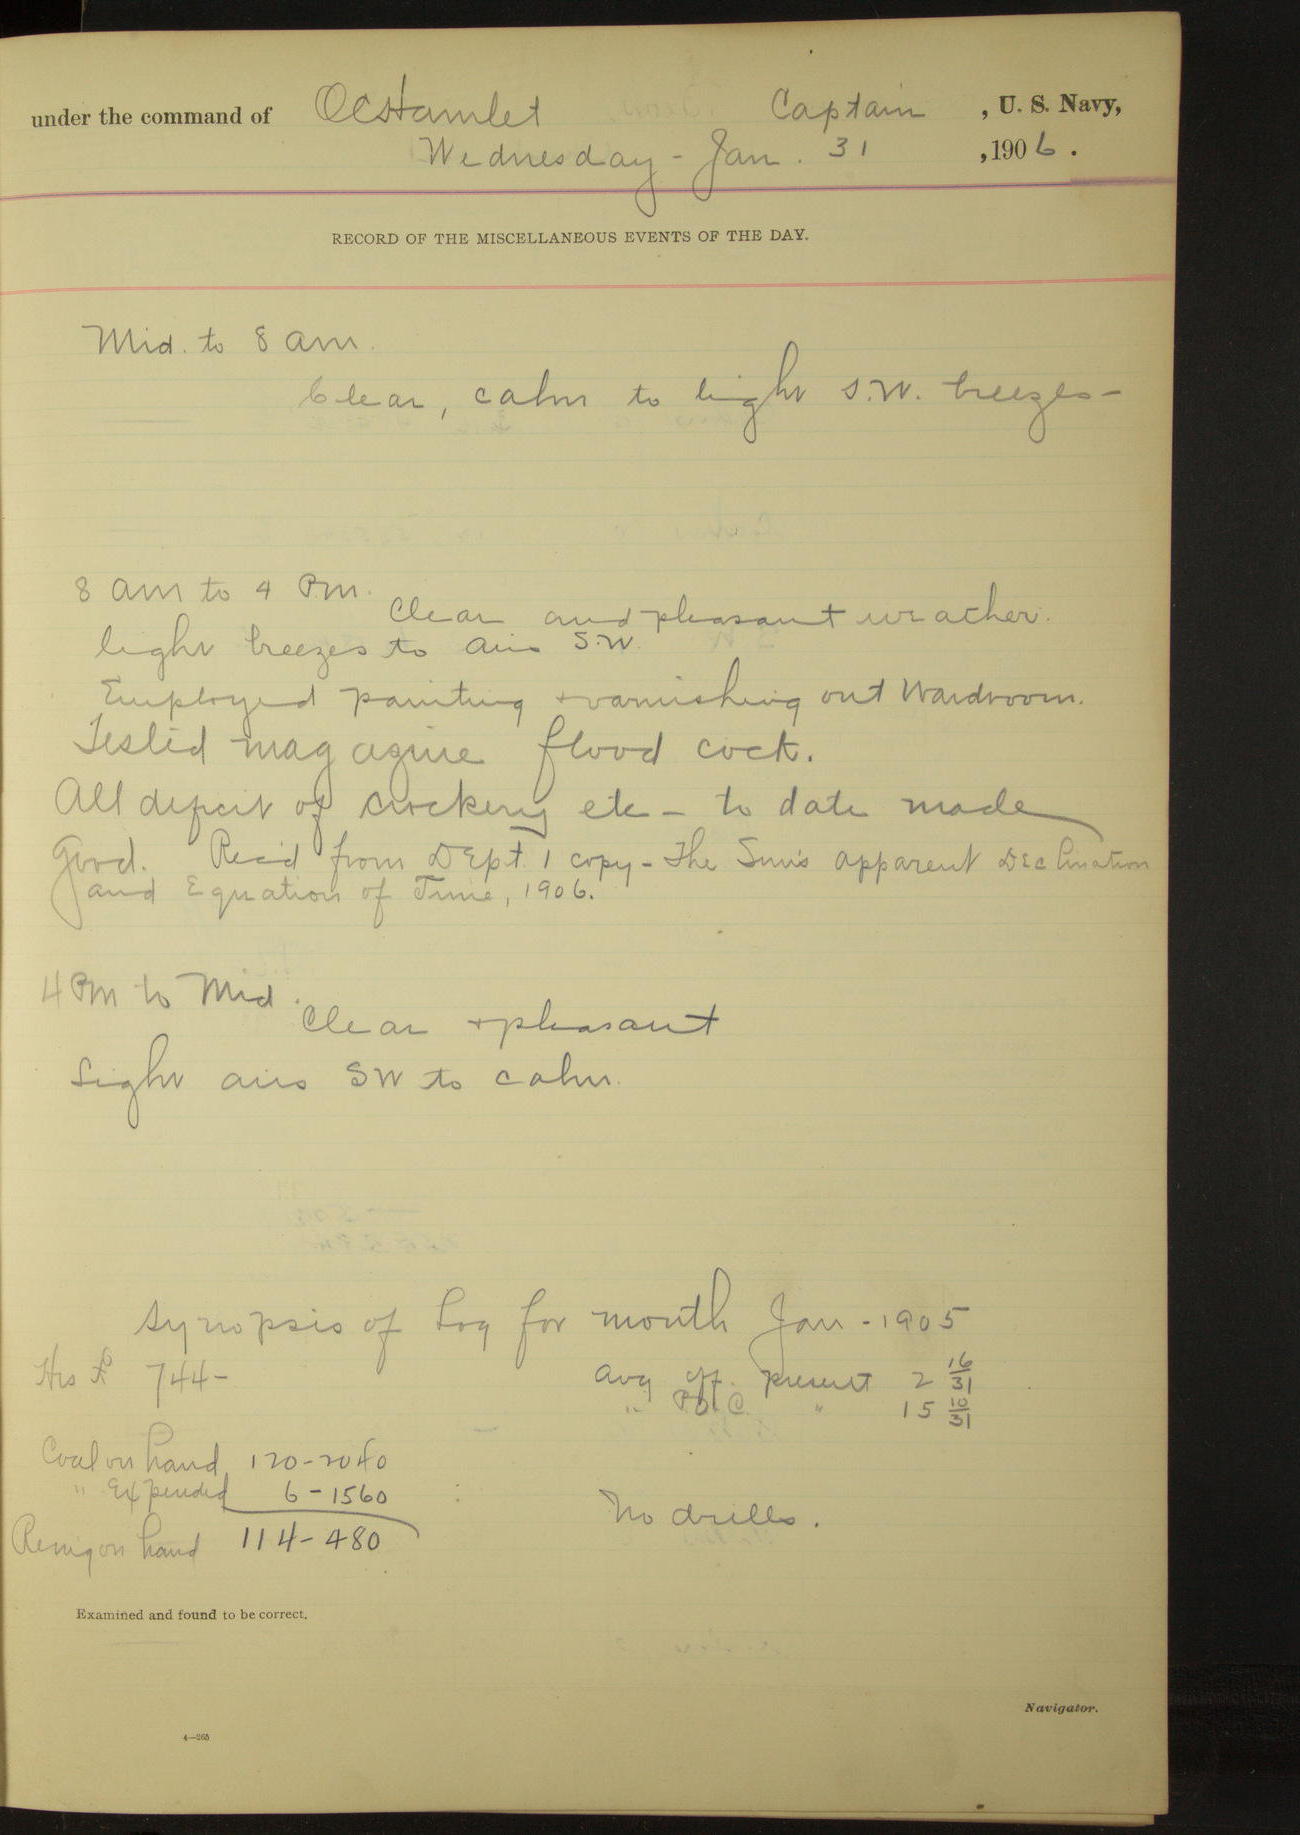 under the command of OCHamlet Captain , U. S. Navy,
Wednesday - Jan. 31 , 1906.
RECORD OF THE MISCELLANEOUS EVENTS OF THE DAY.
Mid. to 8 am.
Clear, calm to light S.W. breezes-
8 am to 4 Pm.
Clear and pleasant weather.
light breezes to airs S.W.
Employed painting + varnishing out Wardroom.
Tested magazine flood cock.
All deficit of crockery etc - to date made
good. Rec'd from Dept. 1 copy - The Sun's apparent Declination
and Equation of Time, 1906.
4 Pm to Mid.
Clear + pleasant
Light airs SW to calm.
Synopsis of Log for month Jan - 1905
Hrs 744-
Avg off. present 2 16/31
" P.O.C. " 15 10/31
Coal on hand 120-2040
" Expended 6-1560
No drills.
Remg on hand 114-480
Examined and found to be correct.
Navigator.
4—265